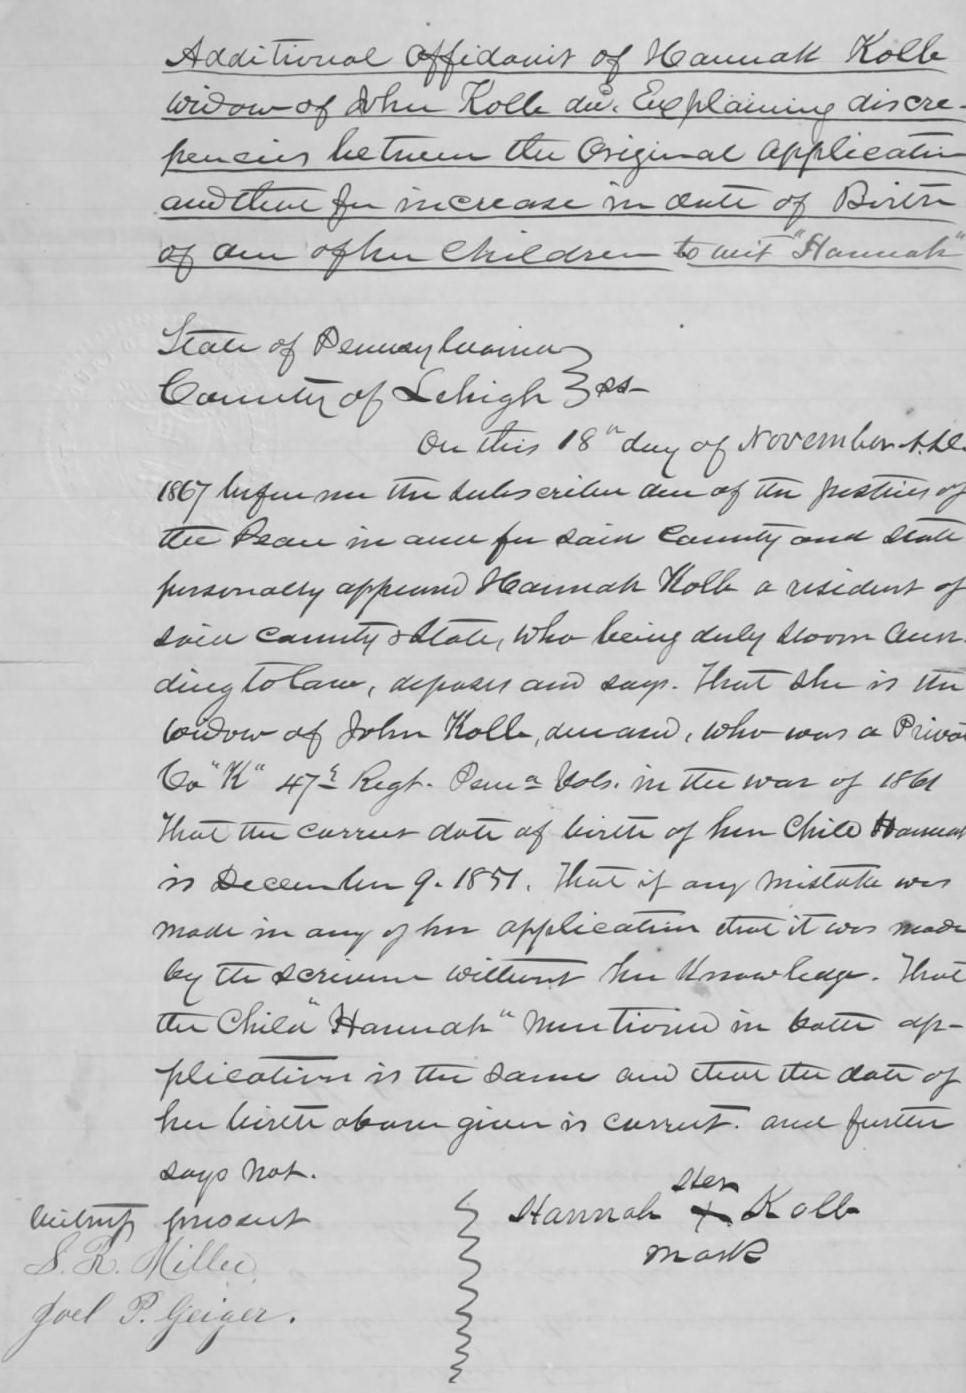 Additional Affidavit of Hannah Kolb
widow of John Kolb decd. Explaining discre-
pencies between the Original Application
and that for increase in date of Birth
of one of her Children to wit "Hannah"
State of Pennsylvania }
County of Lehigh } ss
On this 18th day of November A.D.
1867 before me the subscriber one of the justices of
the Peace in and for said County and State
personally appeared Hannah Kolb a resident of
said County & State, who being duly sworn accor-
ding to law, deposes and says. That she is the
widow of John Kolb, deceased, who was a Private
Co "K" 47th Regt. Penna Vols. in the war of 1861
That the correct date of birth of her Child Hannah
is December 9. 1851. That if any mistake was
made in any of her application that it was made
by the scrivener without her Knowledge. That
the Child "Hannah" mentioned in both ap-
plication is the same and that the date of
her birth above given is correct. and further
says not.
Witness present
Hannah Her X mark Kolb
S. R. Miller
Joel P. Geiger.